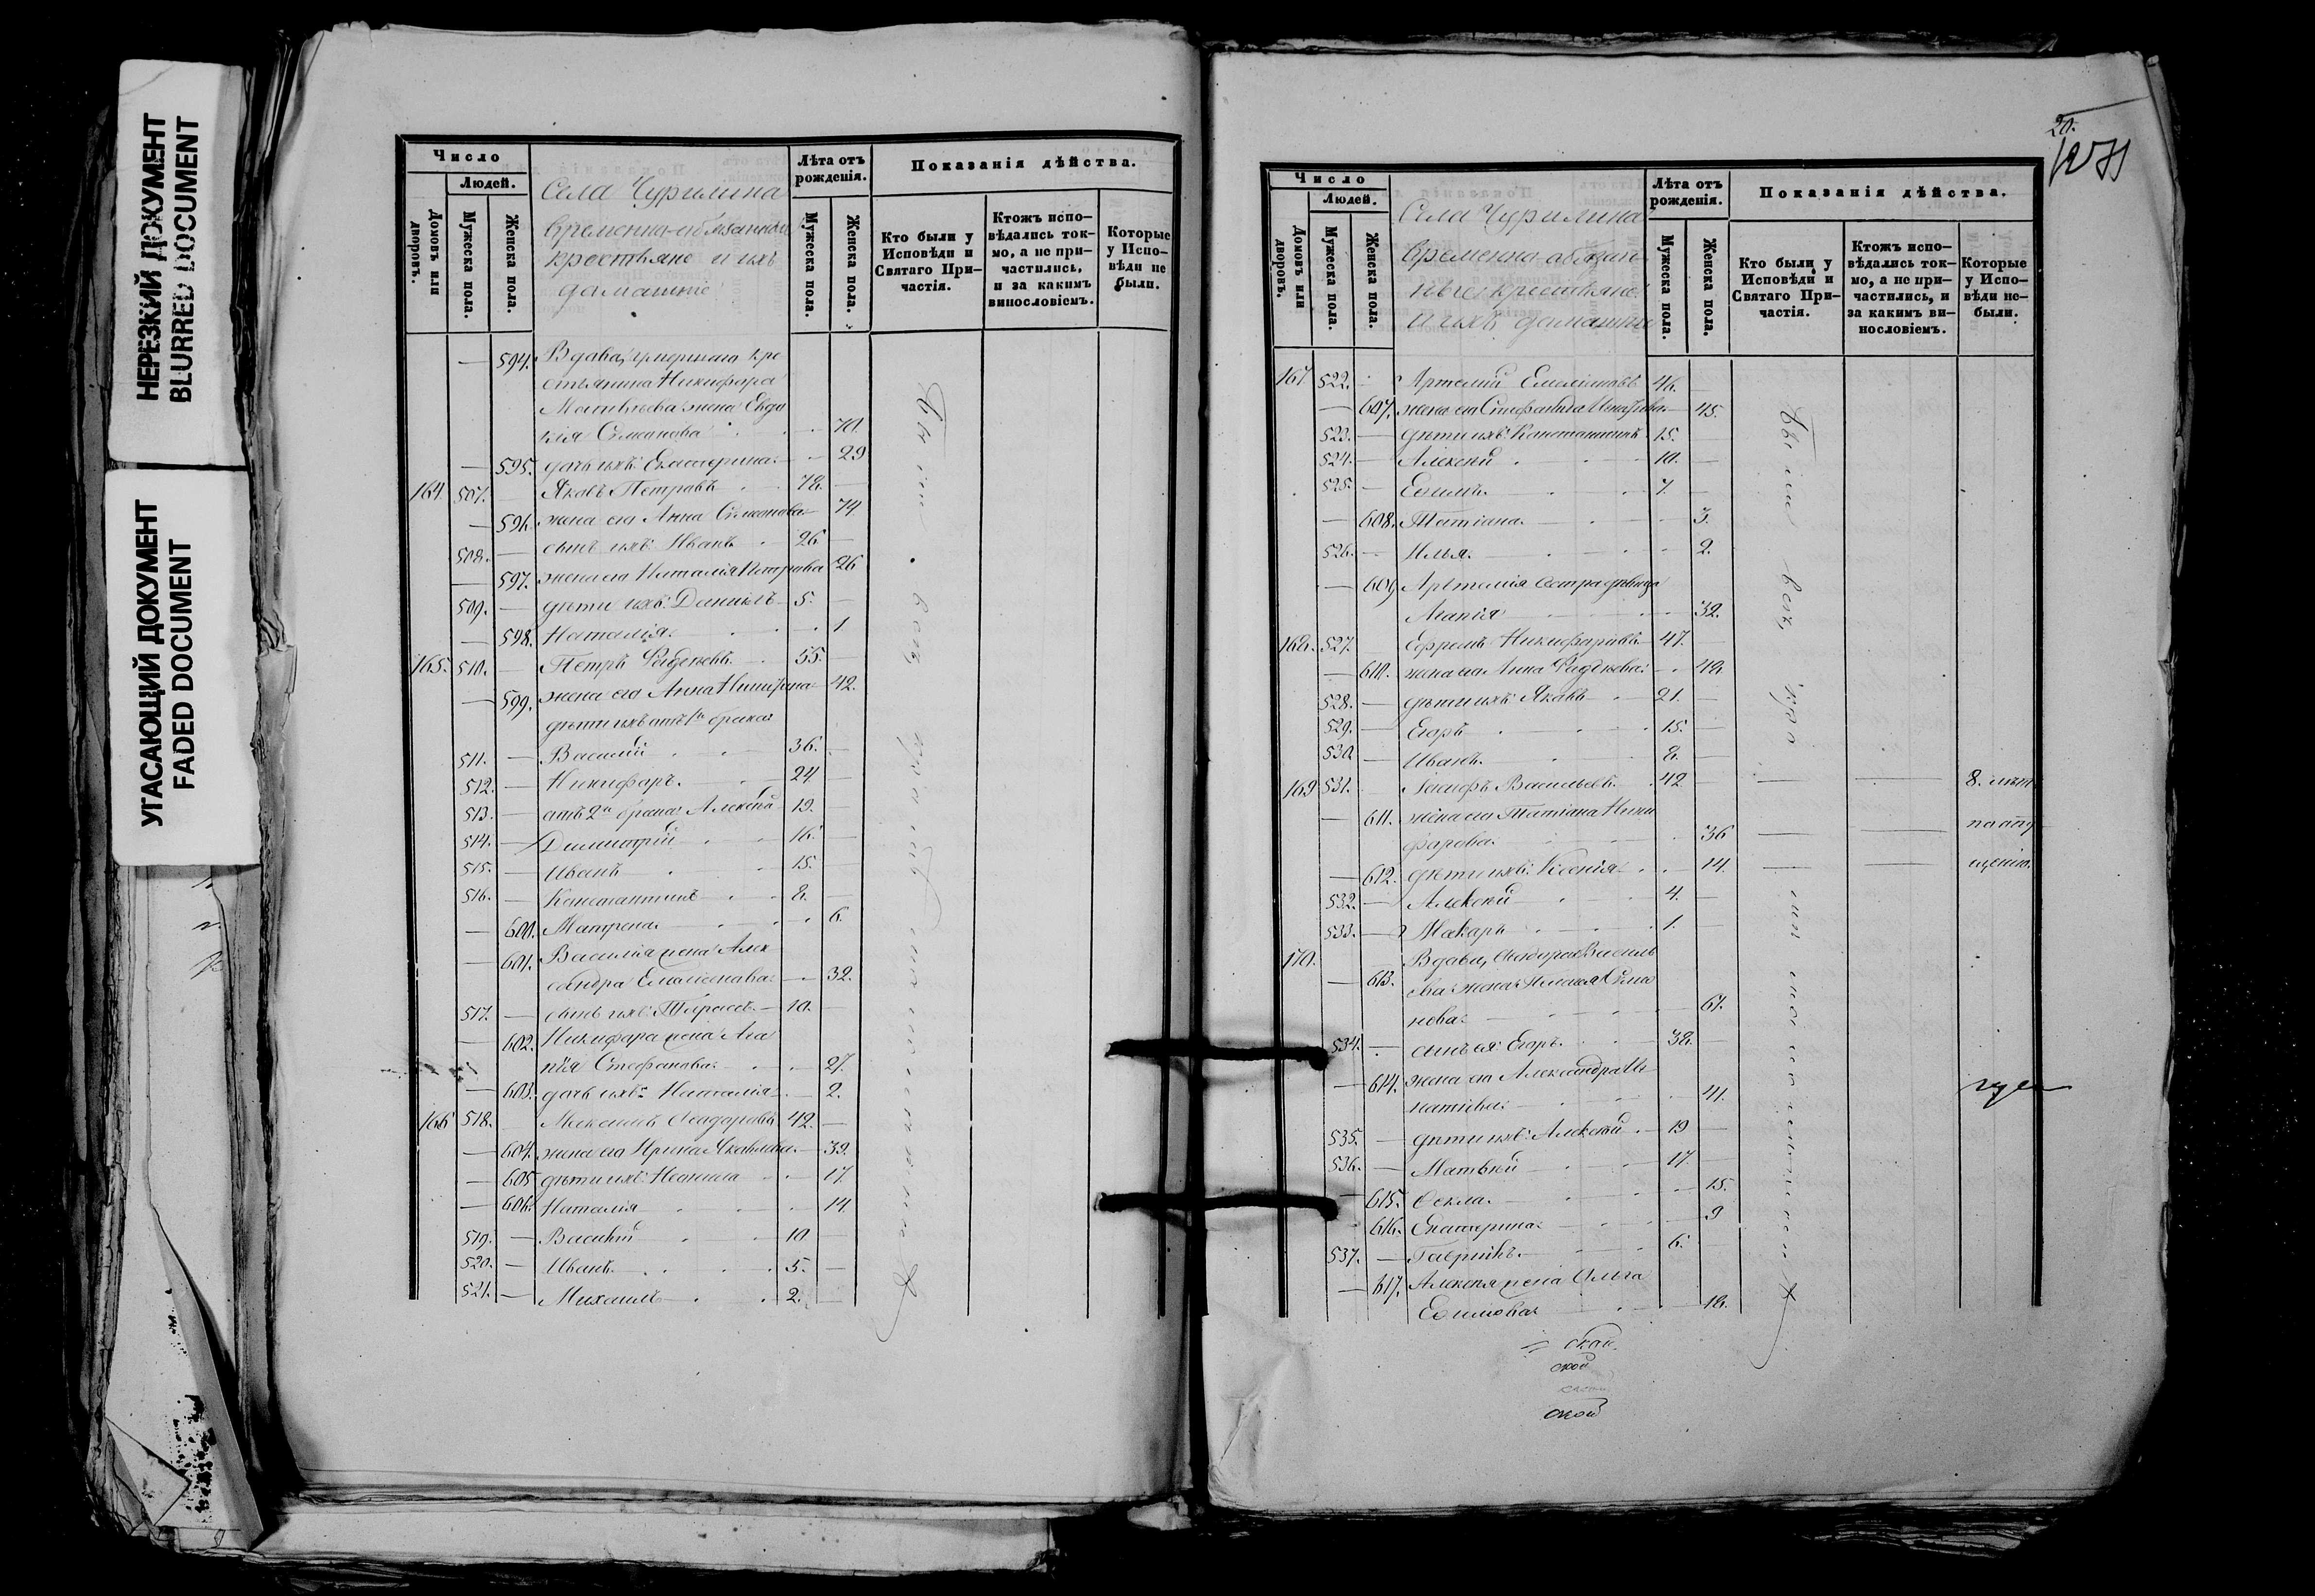 НЕРЕЗКИЙ ДОКУМЕНТ
BLURRED DOCUMENT
УГАСАЮЩИЙ ДОКУМЕНТ
FADED DOCUMENT
Число
Людей.
Домовъ или дворовъ.
Мужеска пола.
Женска пола.
Села Чурилина
временно-обязанные
крестьяне и ихъ
домашніе
Лѣта отъ рожденія.
Мужеска пола.
Женска пола.
Показанія дѣйства.
Кто были у Исповѣди и Святаго При-частія.
Ктожъ испо-вѣдались ток-мо, а не при-частились, и за какимъ винословіемъ.
Которые у Испо-вѣди не были.
— 594. Вдова, умершаго кре
стьянина Никифора
Матвѣева жена Евдо
кія Симонова — 70.
— 595. дочь ихъ Екатерина — 29
164. 507. — Яковъ Петровъ 78. —
— 596. жена его Анна Симонова — 74
508. — сынъ ихъ Иванъ 26 —
— 597. жена его Наталія Петрова 26
509. — дѣти ихъ: Даниилъ 5. —
— 598. Наталія 1
165. 510. — Петръ Фадѣевъ 55. —
— 599. жена его Анна 42.
дѣти ихъ отъ 1го брака
511. — Василій 36. —
512. — Никифоръ 24 —
513. — отъ 2го брака Алексѣй 19. —
514. — Димитрій 16. —
515. — Иванъ 15. —
516. — Константинъ 8. —
— 600. Матрена 6.
— 601. Василія жена Алек
сандра Емельянова — 32.
517. — сынъ ихъ Тарасъ 10. —
— 602. Никифора жена Ага
пія Стефанова 27.
— 603. дочь ихъ Наталія 2.
166 518. Максимъ Ѳеодоровъ 42. —
— 604. жена его Ирина Яковлева — 39.
— 605 дѣти ихъ: 17.
— 606. Наталія 14
519. — Василій 10 —
520. — Иванъ 5. —
521. — Михаилъ 2. —
20.
Число
Людей.
Домовъ или дворовъ.
Мужеска пола.
Женска пола.
Села Чурилина
временно-обязан-
ные крестьяне
и ихъ домашніе
Лѣта отъ рожденія.
Мужеска пола.
Женска пола.
Показанія дѣйства.
Кто были у Исповѣди и Святаго При-частія.
Ктожъ испо-вѣдались ток-мо, а не при-частились, и за какимъ ви-нословіемъ.
Которые у Испо-вѣди не-были.
167 522. Артемій 46. —
— 607. жена его Стефанида — 45.
523. — дѣти ихъ: Константинъ 15. —
524. — Алексѣй 10. —
525. — Ефимъ 7. —
— 608. Татіана 3.
526. — Илья 2.
— 609 Артемія сестра дѣвица
Агапія 32.
168. 527. Ефремъ Никифоровъ 47. —
— 610. жена его Анна Фадѣева 48.
528. — дѣти ихъ: Яковъ 21. —
529. — Егоръ 15. —
530. — Иванъ 8. —
169 531. — Іосифъ Васильевъ 42 — — — 8. лѣтъ
— 611. жена его Татіана Ники
форова 36 — — по опу
— 612. дѣти ихъ: Ксенія 14. — — щенію.
532. — Алексѣй 4. —
533. — Макаръ 1. —
170. Вдова, Ѳеодора Василь
— 613. ева жена
нова 67.
534. — сынъ ея Егоръ 38. —
— 614. жена его Александра Иг
натьева 41.
535. — дѣти ихъ: Алексѣй 19 —
536. — Матвѣй 17. —
— 615. Ѳекла 15.
— 616. Екатерина 9
537. — Гавріилъ 6. —
— 617. Алексѣя жена Ольга
Ефимова 18.
ской
ской